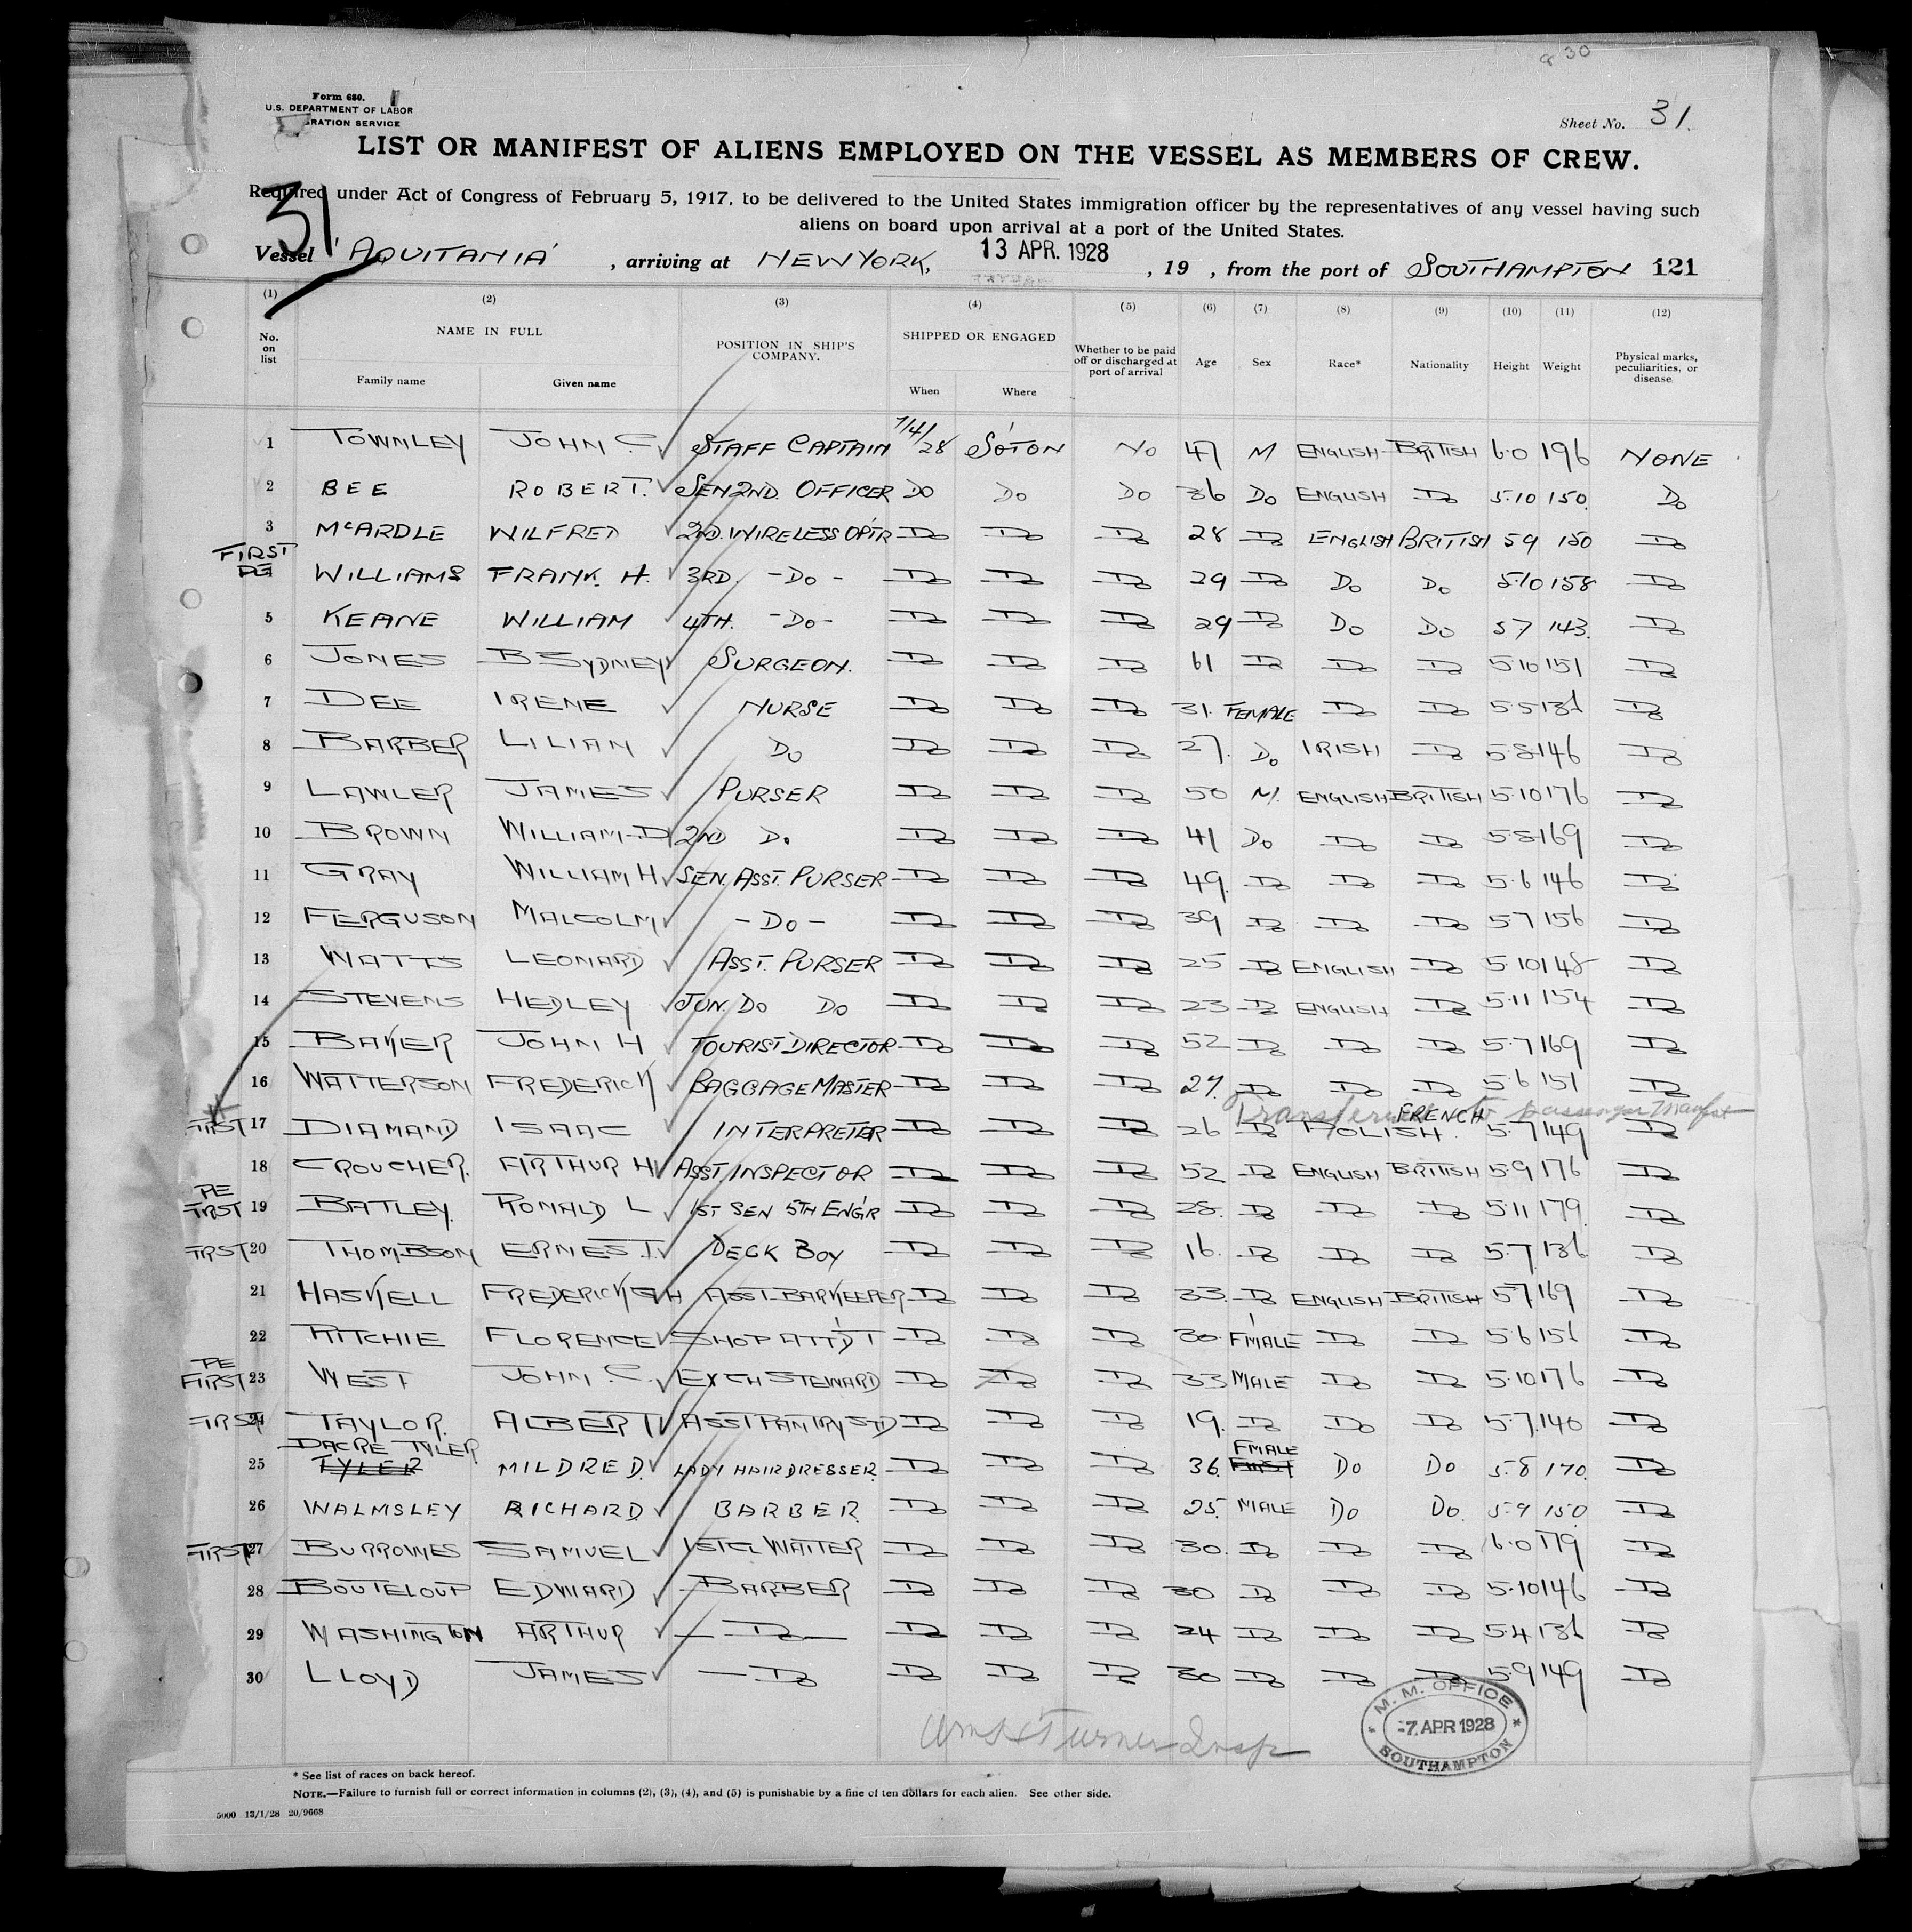 & 30
Form 680.
U.S. DEPARTMENT OF LABOR
GRATION SERVICE
Sheet No. 31.
LIST OR MANIFEST OF ALIENS EMPLOYED ON THE VESSEL AS MEMBERS OF CREW.
Required under Act of Congress of February 5, 1917, to be delivered to the United States immigration officer by the representatives of any vessel having such
aliens on board upon arrival at a port of the United States.
31
Vessel 'AQUITANIA' , arriving at NEW YORK, 13 APR. 1928 , 19 , from the port of SOUTHAMPTON 121
(1) (2) (3) (4) (5) (6) (7) (8) (9) (10) (11) (12)
No. on list NAME IN FULL POSITION IN SHIP'S COMPANY. SHIPPED OR ENGAGED Whether to be paid off or discharged at port of arrival Age Sex Race* Nationality Height Weight Physical marks, peculiarities, or disease.
Family name Given name When Where
1 TOWNLEY JOHN C. STAFF CAPTAIN 7/4/28 S'OTON NO 47 M ENGLISH BRITISH 6.0 196 NONE
2 BEE ROBERT. SEN 2ND. OFFICER DO DO DO 36 DO ENGLISH DO 5.10 150. DO
3 McARDLE WILFRED 2ND. WIRELESS OP'TR DO DO DO 28 DO ENGLISH BRITISH 5 9 150 DO
FIRST
WILLIAMS FRANK. H. 3RD. -DO- DO DO DO 29 DO DO DO 5.10 158 DO
5 KEANE WILLIAM 4TH. -DO- DO DO DO 29 DO DO DO 5 7 143. DO
6 JONES B SYDNEY SURGEON. DO DO DO 61 DO DO DO 5.10 151 DO
7 DEE IRENE NURSE DO DO DO 31. FEMALE DO DO 5.5 136 DO
8 BARBER LILIAN DO DO DO DO 27. DO IRISH DO 5.8 146 DO
9 LAWLER JAMES PURSER DO DO DO 50 M. ENGLISH BRITISH 5.10 176 DO
10 BROWN WILLIAM-D 2ND DO DO DO DO 41 DO DO DO 5.8 169 DO
11 GRAY WILLIAM H. SEN. ASST. PURSER DO DO DO 49. DO DO DO 5.6 146 DO
12 FERGUSON MALCOLM -DO- DO DO DO 39 DO DO DO 5.7 156 DO
13 WATTS LEONARD ASST. PURSER DO DO DO 25 DO ENGLISH DO 5.10 148 DO
14 STEVENS HEDLEY JUN. DO DO DO DO DO 23 DO ENGLISH DO 5.11 154 DO
15 BAKER JOHN H TOURIST DIRECTOR DO DO DO 52 DO DO DO 5.7 169 DO
16 WATTERSON FREDERICK BAGGAGE MASTER DO DO DO 27. DO DO DO 5.6 151 DO
Transferred to passenger Manifest
FRENCH
FIRST 17 DIAMAND ISAAC INTERPRETER DO DO DO 26 DO POLISH. 5.7 149 DO
18 CROUCHER. ARTHUR H ASST. INSPECTOR DO DO DO 52 DO ENGLISH BRITISH 5.9 176 DO
PE
FIRST 19 BATLEY. RONALD L 1ST SEN 5TH ENG'R DO DO DO 28. DO DO DO 5.11 179. DO
FIRST 20 THOMPSON ERNEST. DECK BOY DO DO DO 16. DO DO DO 5.7. 136 DO
21 HASKELL FREDERICK G H ASST-BARKEEPER DO DO DO 33. DO ENGLISH BRITISH 5 7 169 DO
22 RITCHIE FLORENCE SHOP ATT'D'T DO DO DO 30. F'MALE DO DO 5.6 156 DO
PE
FIRST 23 WEST JOHN. C. EXTH STEWARD DO DO DO 33 MALE DO DO 5.10 176 DO
FIRST 24 TAYLOR. ALBERT ASST PANTRY STD DO DO DO 19. DO DO DO 5.7. 140 DO
DACRE TYLER FMALE
25 TYLER MILDRED. LADY HAIRDRESSER. DO DO DO 36. FIRST DO DO 5.8 170. DO
26 WALMSLEY RICHARD. BARBER. DO DO DO 25. MALE DO DO. 5.9 150. DO
FIRST 27 BURROWES SAMUEL 1ST CL WAITER DO DO DO 30. DO DO DO 6.0 179 DO
28 BOUTELOUP EDWARD BARBER DO DO DO 30 DO DO DO 5.10 146 DO
29 WASHINGTON ARTHUR — DO — DO DO DO 24 DO DO DO 5.4 136 DO
30 LLOYD JAMES — DO DO DO DO 30 DO DO DO 5.9 149 DO
Turner Insp
M. M. OFFICE
-7 APR 1928
SOUTHAMPTON
* See list of races on back hereof.
NOTE.—Failure to furnish full or correct information in columns (2), (3), (4), and (5) is punishable by a fine of ten dollars for each alien. See other side.
5000 13/1/28 20/9668